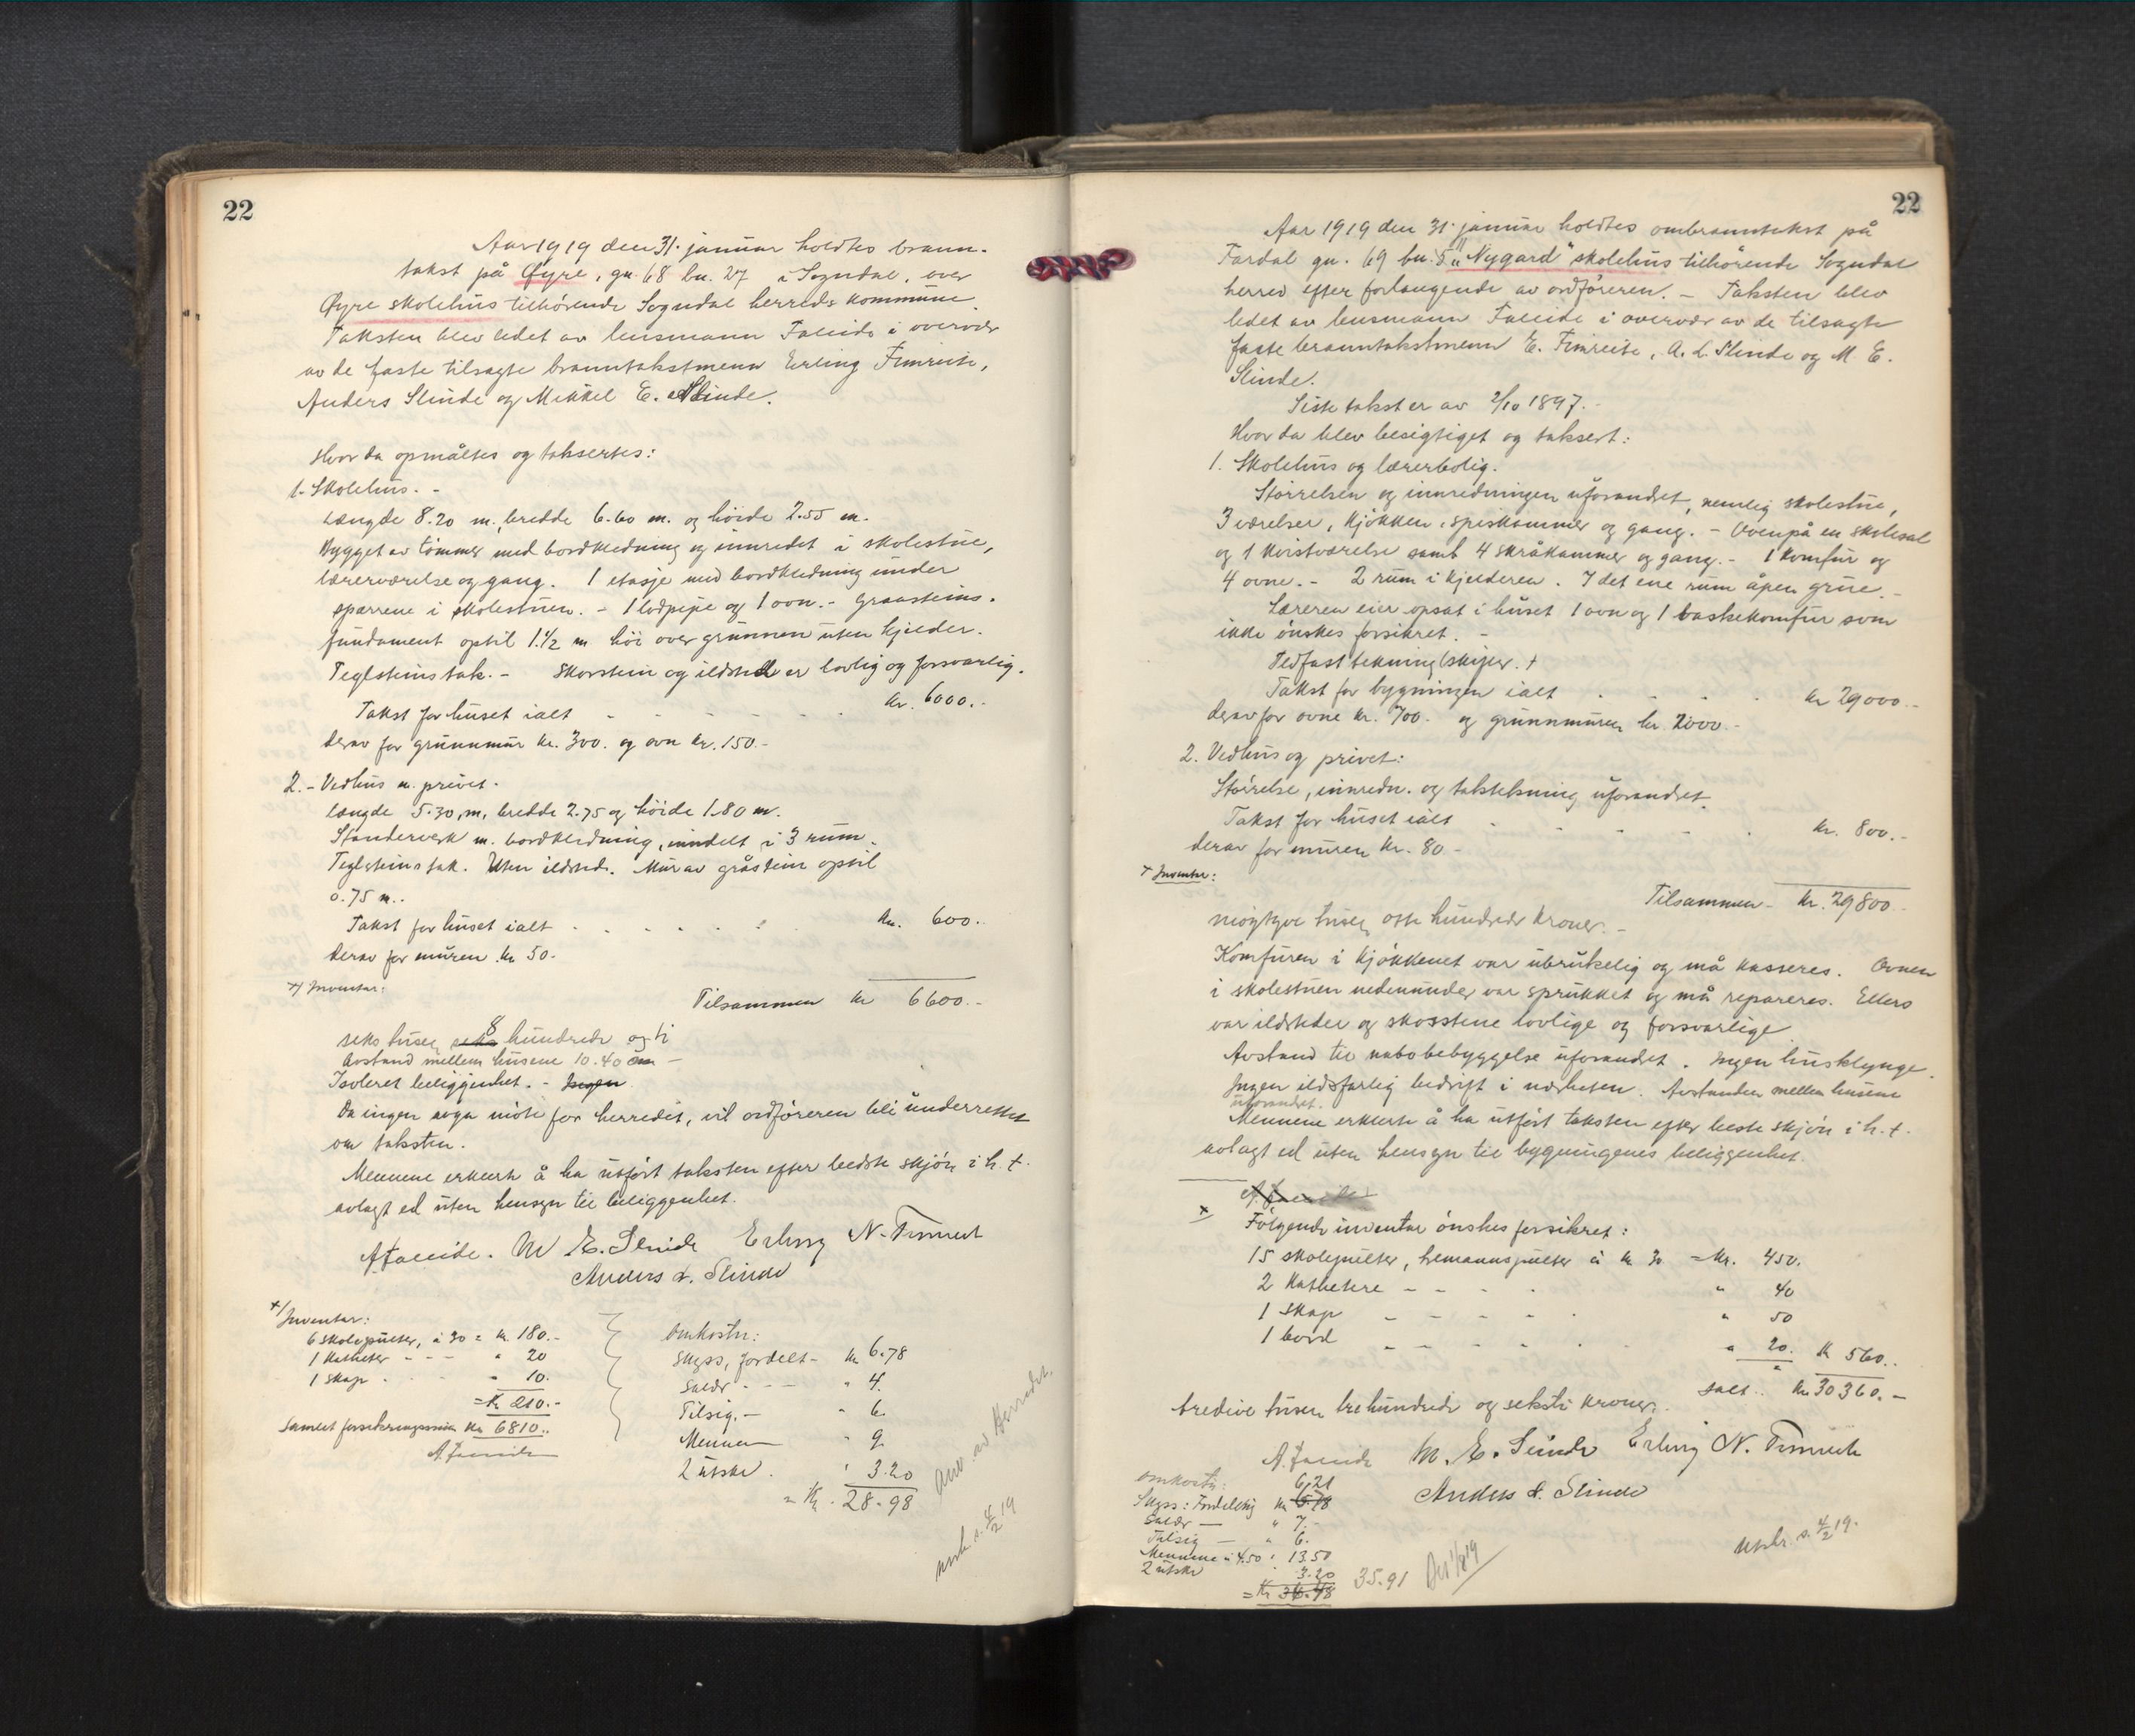 22
Aar 1919 den 31. januar holdtes brann-
takst på Øyre, gn. 68 bn. 27 i Sogndal, over
Øyre skolehus tilhørende Sogndal herreds kommune
Taksten blev ledet av lensmann Faleide i overvær
av de faste tilsagte branntakstmenn Erling Fimreite,
Anders Slinde og Mikkel E. Slinde.
Hvor da opmåltes og taksertes:
1. Skolehus. -
Længde 8.20 m., bredde 6.60 m. og höide 2.55 m.
Bygget av tömmer med bordklædning og innredet i skolestue,
lærerværelse og gang. 1 etasje med bordklædning under
sparrene i skolestuen. - 1 lodpipe og 1 ovn. - Graasteins-
fundament optil 1.1/2 m høi over grunnen uten kjelder.
Teglsteins tak. - Skorstein og ildsted er lovlig og forsvarlig.
Takst for huset ialt - - - - - kr. 6000.-
derav for grunnmur kr. 300. og ovn kr. 150.-
2. - Vedhus m. privet.
længde 5.30, m, bredde 2.75 og höide 1.80 m.
Standerverk m. bordkledning, inndelt i 3 rum.
Teglsteins tak. Uten ildsted. Mur av gråstein optil
0.75 m..
Takst for huset ialt . . . . . kr. 600..
derav for muren kr 50.
x) Inventar:
Tilsammen kr 6600.-
seks tusen seks 8 hundrede og ti
Avstand mellem husene 10.40 m -
Isoleret beliggenhet. - Ingen
Da ingen avga möte for herredet, vil ordföreren bli underrettet
om taksten.
Mennene erklærte å ha utfört taksten efter bedste skjön i h. t.
avlagt ed uten hensyn til beliggenhet.
A Faleide. M E. Slinde Erling N. Fimreit
Anders L. Slinde
x) Inventar:
6 skolepulter, à 30 = kr. 180.-
1 Katheter - - - " 20
1 skap . . " 10.
= Kr 210.-
Samlet forsikringssum Kr 6810..
A. Faleide
Omkostn:
Skyss, fordelt - kr 6.78
Salær - - - " 4.
Tilsig. - " 6.
Mennene " 9.
2 utskr. " 3.20
= Kr. 28.98
Anv. av Herredet.
utskr. s. 4/2 19
22
Aar 1919 den 31. januar holdtes ombranntakst på
Fardal gn. 69 bn. 5 "Nygard" skolehus tilhörende Sogndal
herred efter forlangende av ordföreren. - Taksten blev
ledet av lensmann Faleide i overvær av de tilsagte
faste branntakstmenn E. Fimreite, A. L. Slinde og M. E.
Slinde.
Siste takst er av 2/10 1897. -
Hvor da blev besigtiget og taksert:
1. Skolehus og lærerbolig.
Störrelsen og innredningen uforandret, nemlig skolestue,
3 værelser, kjökken, spiskammer og gang. - Ovenpå en skolesal
og 1 kvistværelse samt 4 skråkammer og gang. - 1 komfur og
4 ovne. - 2 rum i kjelderen. I det ene rum åpen grue. -
Læreren eier opsat i huset 1 ovn og 1 vaskekomfur som
ikke önskes forsikret. -
Ildfast tekning (skifer. +
Takst for bygningen ialt . . . . kr 29000.-
derav for ovne kr. 700. og grunnmuren kr. 2000.-
2. Vedhus og privet:
Störrelse, innredn. og taktekning uforandret.
Takst for huset ialt . . . . . kr. 800.-
derav for muren kr. 80 -
x Inventar:
Tilsammen - kr. 29800.-
niogtyve tusen otte hundrede kroner. -
Komfuren i kjökkenet var ubrukelig og må kasseres. Ovnen
i skolestuen nedenunder var sprukket og må repareres. Ellers
var ildsteder og skorstene lovlige og forsvarlige
Avstand til nabobebyggelse uforandret. Ingen husklynge.
Ingen ildsfarlig bedrift i nærheten. Avstanden mellem husene
uforandret.
Mennene erklærte å ha utfört taksten efter beste skjön i h. t.
avlagt ed uten hensyn til bygningenes beliggenhet.
A. Faleide
x
Fölgende inventar önskes forsikret:
15 skolepulter, tremannspulter à kr 30 = Kr. 450.
2 Kathetere - - . . " 40
1 skap - - - - . " 50
1 bord - - - - . . " 20. Kr 560..
Ialt.. Kr 30360.-
tredive tusen trehundrede og seksti kroner.
A. Faleide M. E. Slinde Erling N. Fimreite
Anders L. Slinde
Omkostn:
6,21
Skyss: Fordeling kr 6.78
Salær - " 7.-
Tilsig - " 6.
Mennene à 4.50 " 13.50
2 utskr 3.20
= Kr 36.48 35.91
utskr. s. 4/2 19.